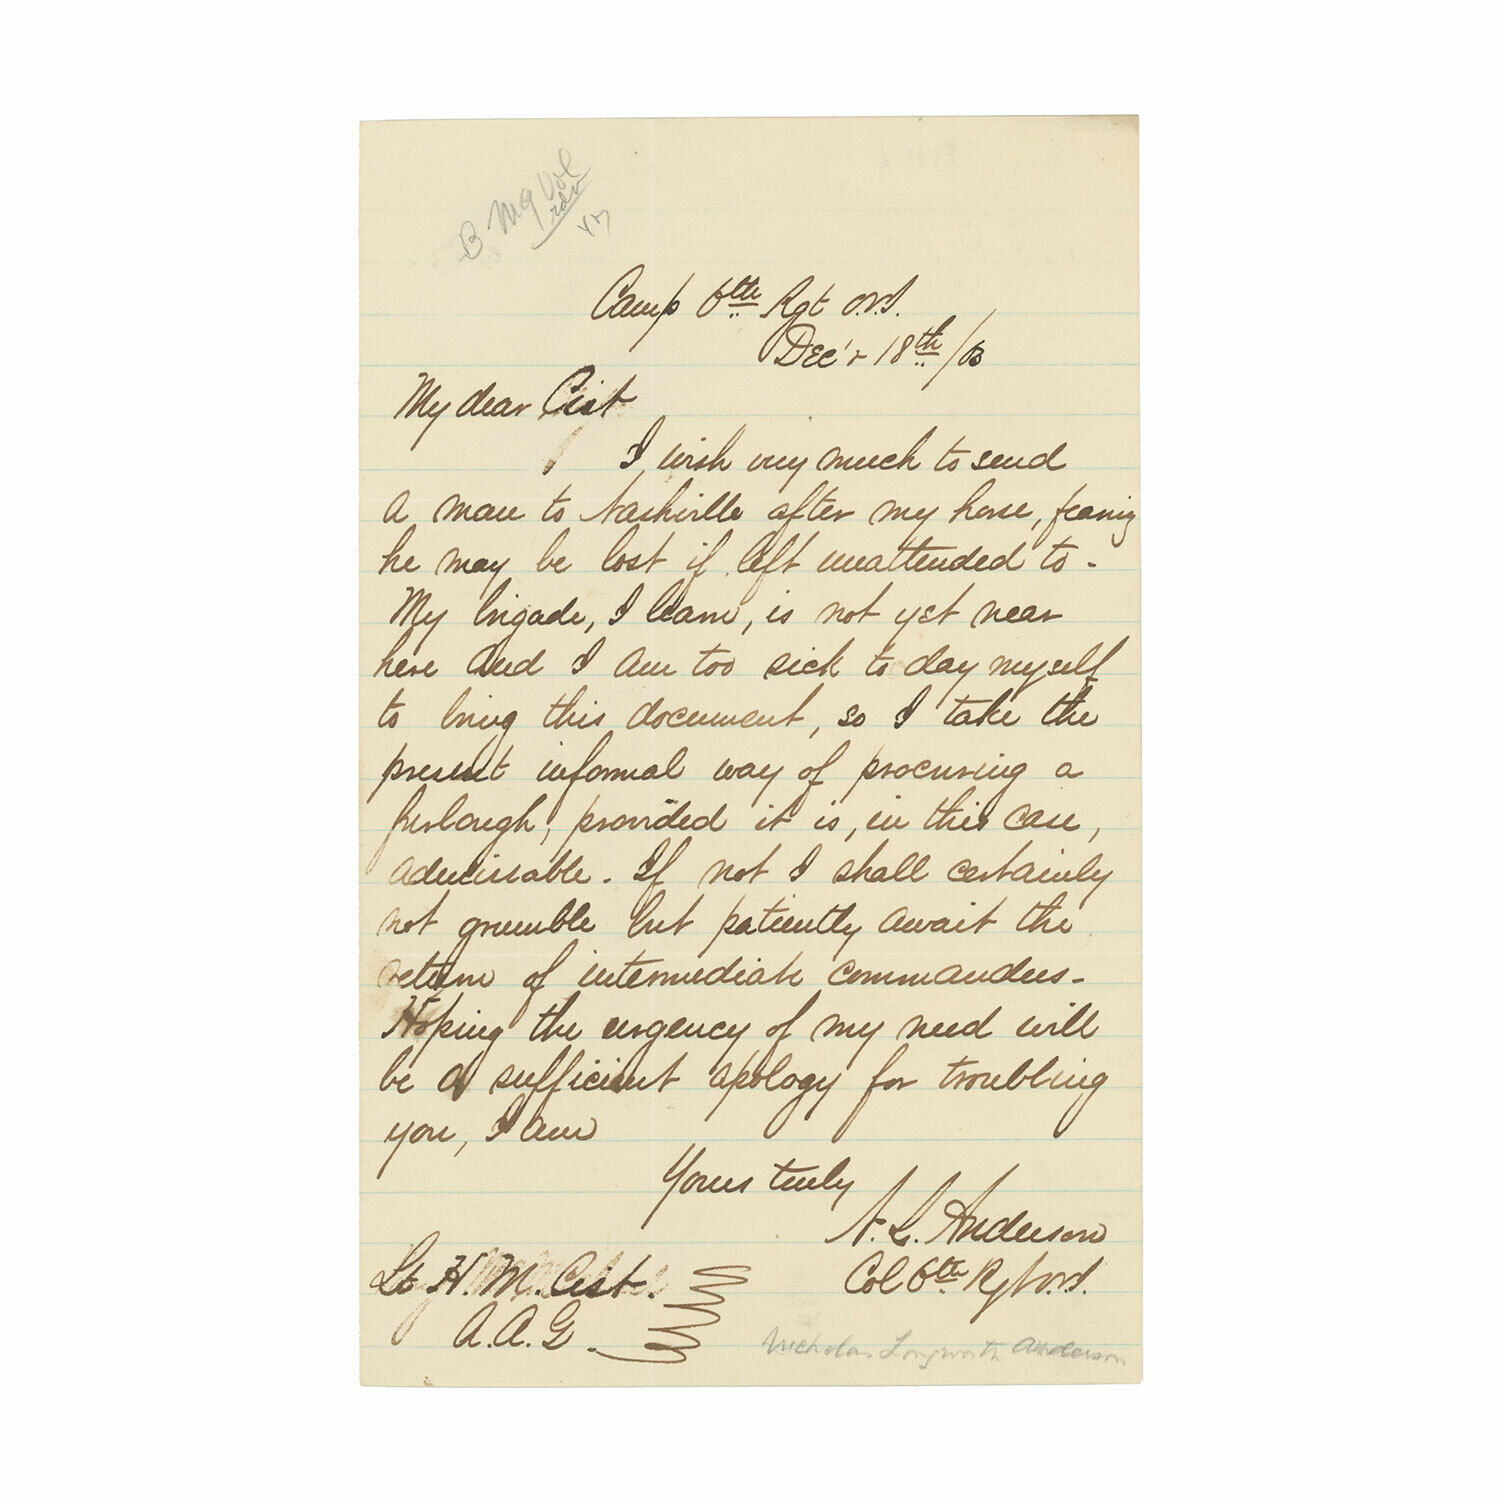 B Mg Vol
Camp 6th Rgt O.V.I.
Dec'r 18th /63
My dear Cist
I wish very much to send
a man to Nashville after my horse, fearing
he may be lost if left unattended to -
My brigade, I learn, is not yet near
here and I am too sick to day myself
to bring this document, so I take the
present informal way of procuring a
furlough, provided it is, in this case,
admissable. If not I shall certainly
not grumble but patiently await the
return of intermediate commanders -
Hoping the urgency of my need will
be a sufficient apology for troubling
you, I am
Yours truly
N. L. Anderson
Col 6th Rgt O.V.I.
Lt H. M. Cist.
A. A. G.
Nicholas Longworth Anderson